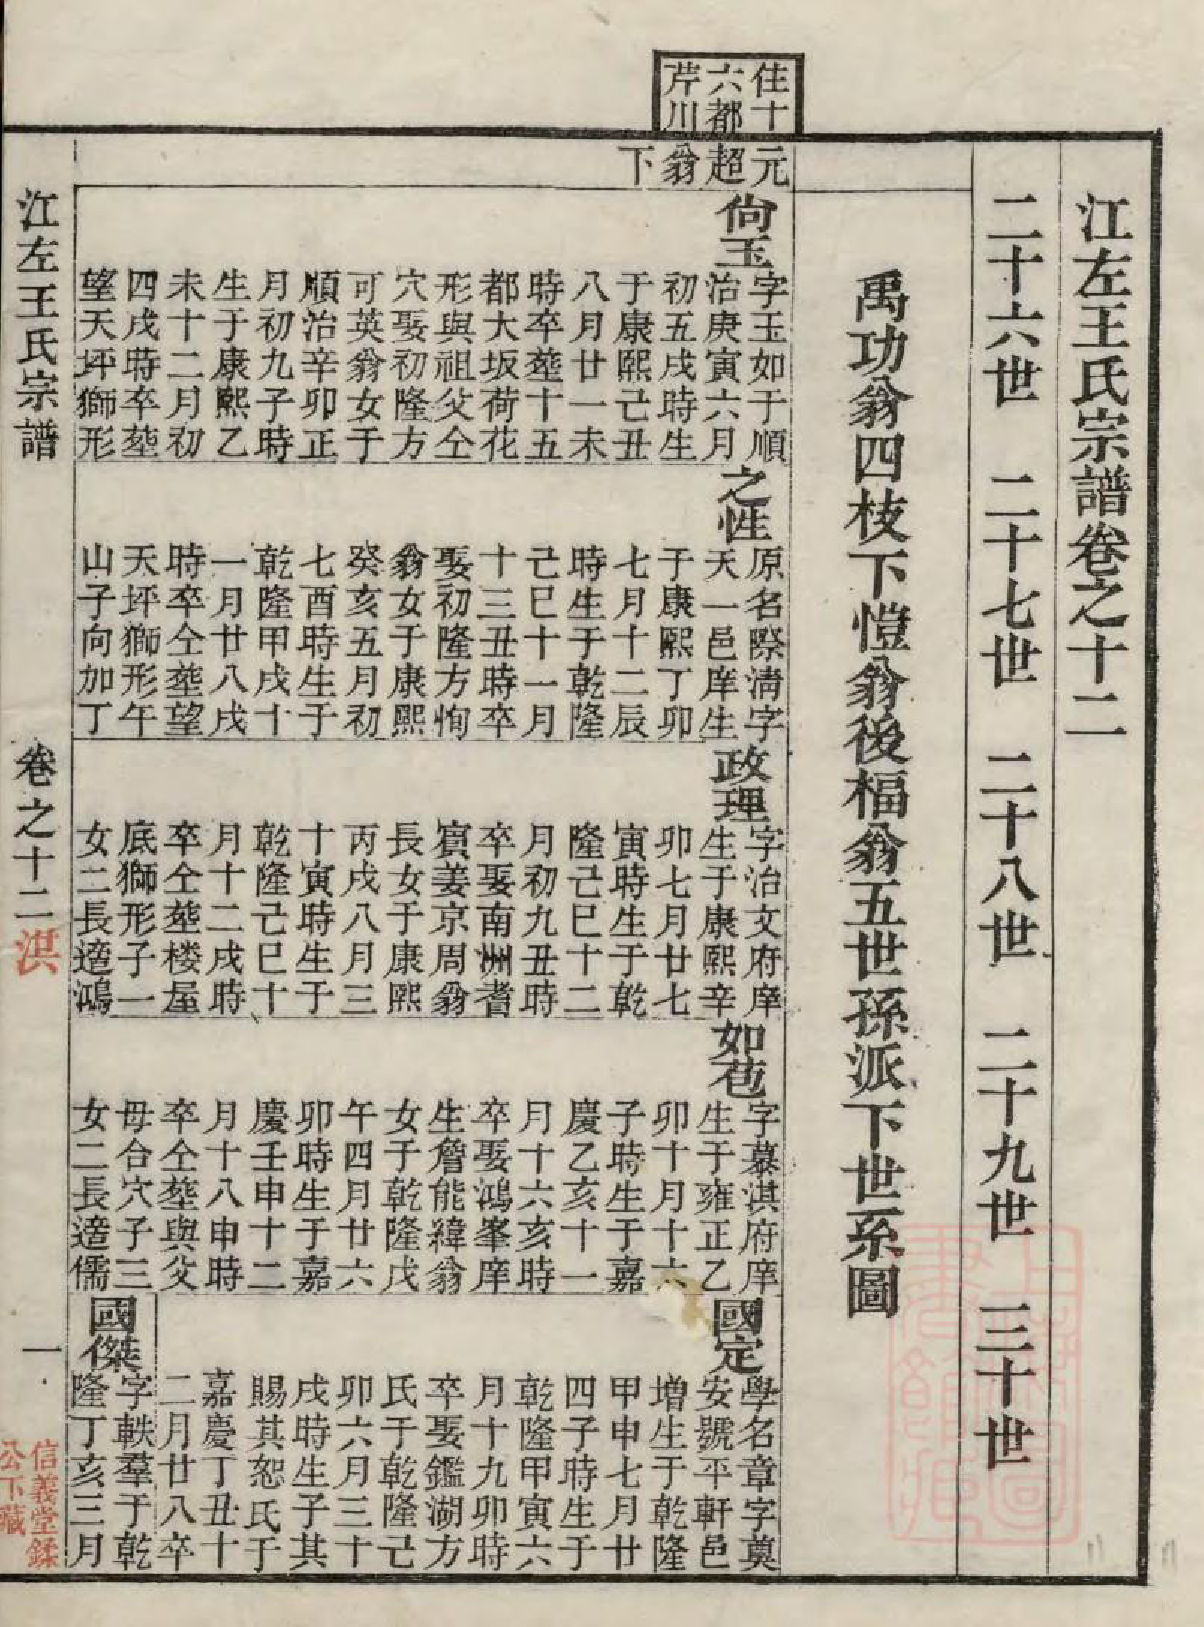 江左王氏宗譜卷之十二
二十六世　二十七世　二十八世　二十九世　三十世
禹功翁四枝下愷翁後楅翁五世孫派下世系圖
住十
六都
芹川
元超翁下
尙玉
字玉如于順
治庚寅六月
初五戌時生
于康熙己丑
八月廿一未
時卒塟十五
都大坂荷花
形與祖父仝
穴娶初隆方
可英翁女于
順治辛卯正
月初九子時
生于康熙乙
未十二月初
四戌時卒塟
望天坪獅形
之性
原名際淸字
天一邑庠生
于康熙丁卯
七月十二辰
時生于乾隆
己巳十一月
十三丑時卒
娶初隆方恂
翁女于康熙
癸亥五月初
七酉時生于
乾隆甲戌十
一月廿八戌
時卒仝塟望
天坪獅形午
山子向加丁
政理
字治文府庠
生于康熙辛
卯七月廿七
寅時生于乾
隆己巳十二
月初九丑時
卒娶南洲耆
賓姜京周翁
長女于康熙
丙戌八月三
十寅時生于
乾隆己巳十
月十二戌時
卒仝塟楼屋
底獅形子一
女二長適鴻
如苞
字慕淇府庠
生于雍正乙
卯十月十六
子時生于嘉
慶乙亥十一
月十六亥時
卒娶鴻峯庠
生詹能緯翁
女于乾隆戊
午四月廿六
卯時生于嘉
慶壬申十二
月十八申時
卒仝塟與父
母合穴子三
女二長適儒
國定
學名章字奠
安號平軒邑
增生于乾隆
甲申七月廿
四子時生于
乾隆甲寅六
月十九卯時
卒娶鑑湖方
氏于乾隆己
卯六月三十
戌時生子其
賜其恕氏于
嘉慶丁丑十
二月廿八卒
國傑
字軼羣于乾
隆丁亥三月
江左王氏宗譜
卷之十二
淇
一
信義堂鍒
公下藏